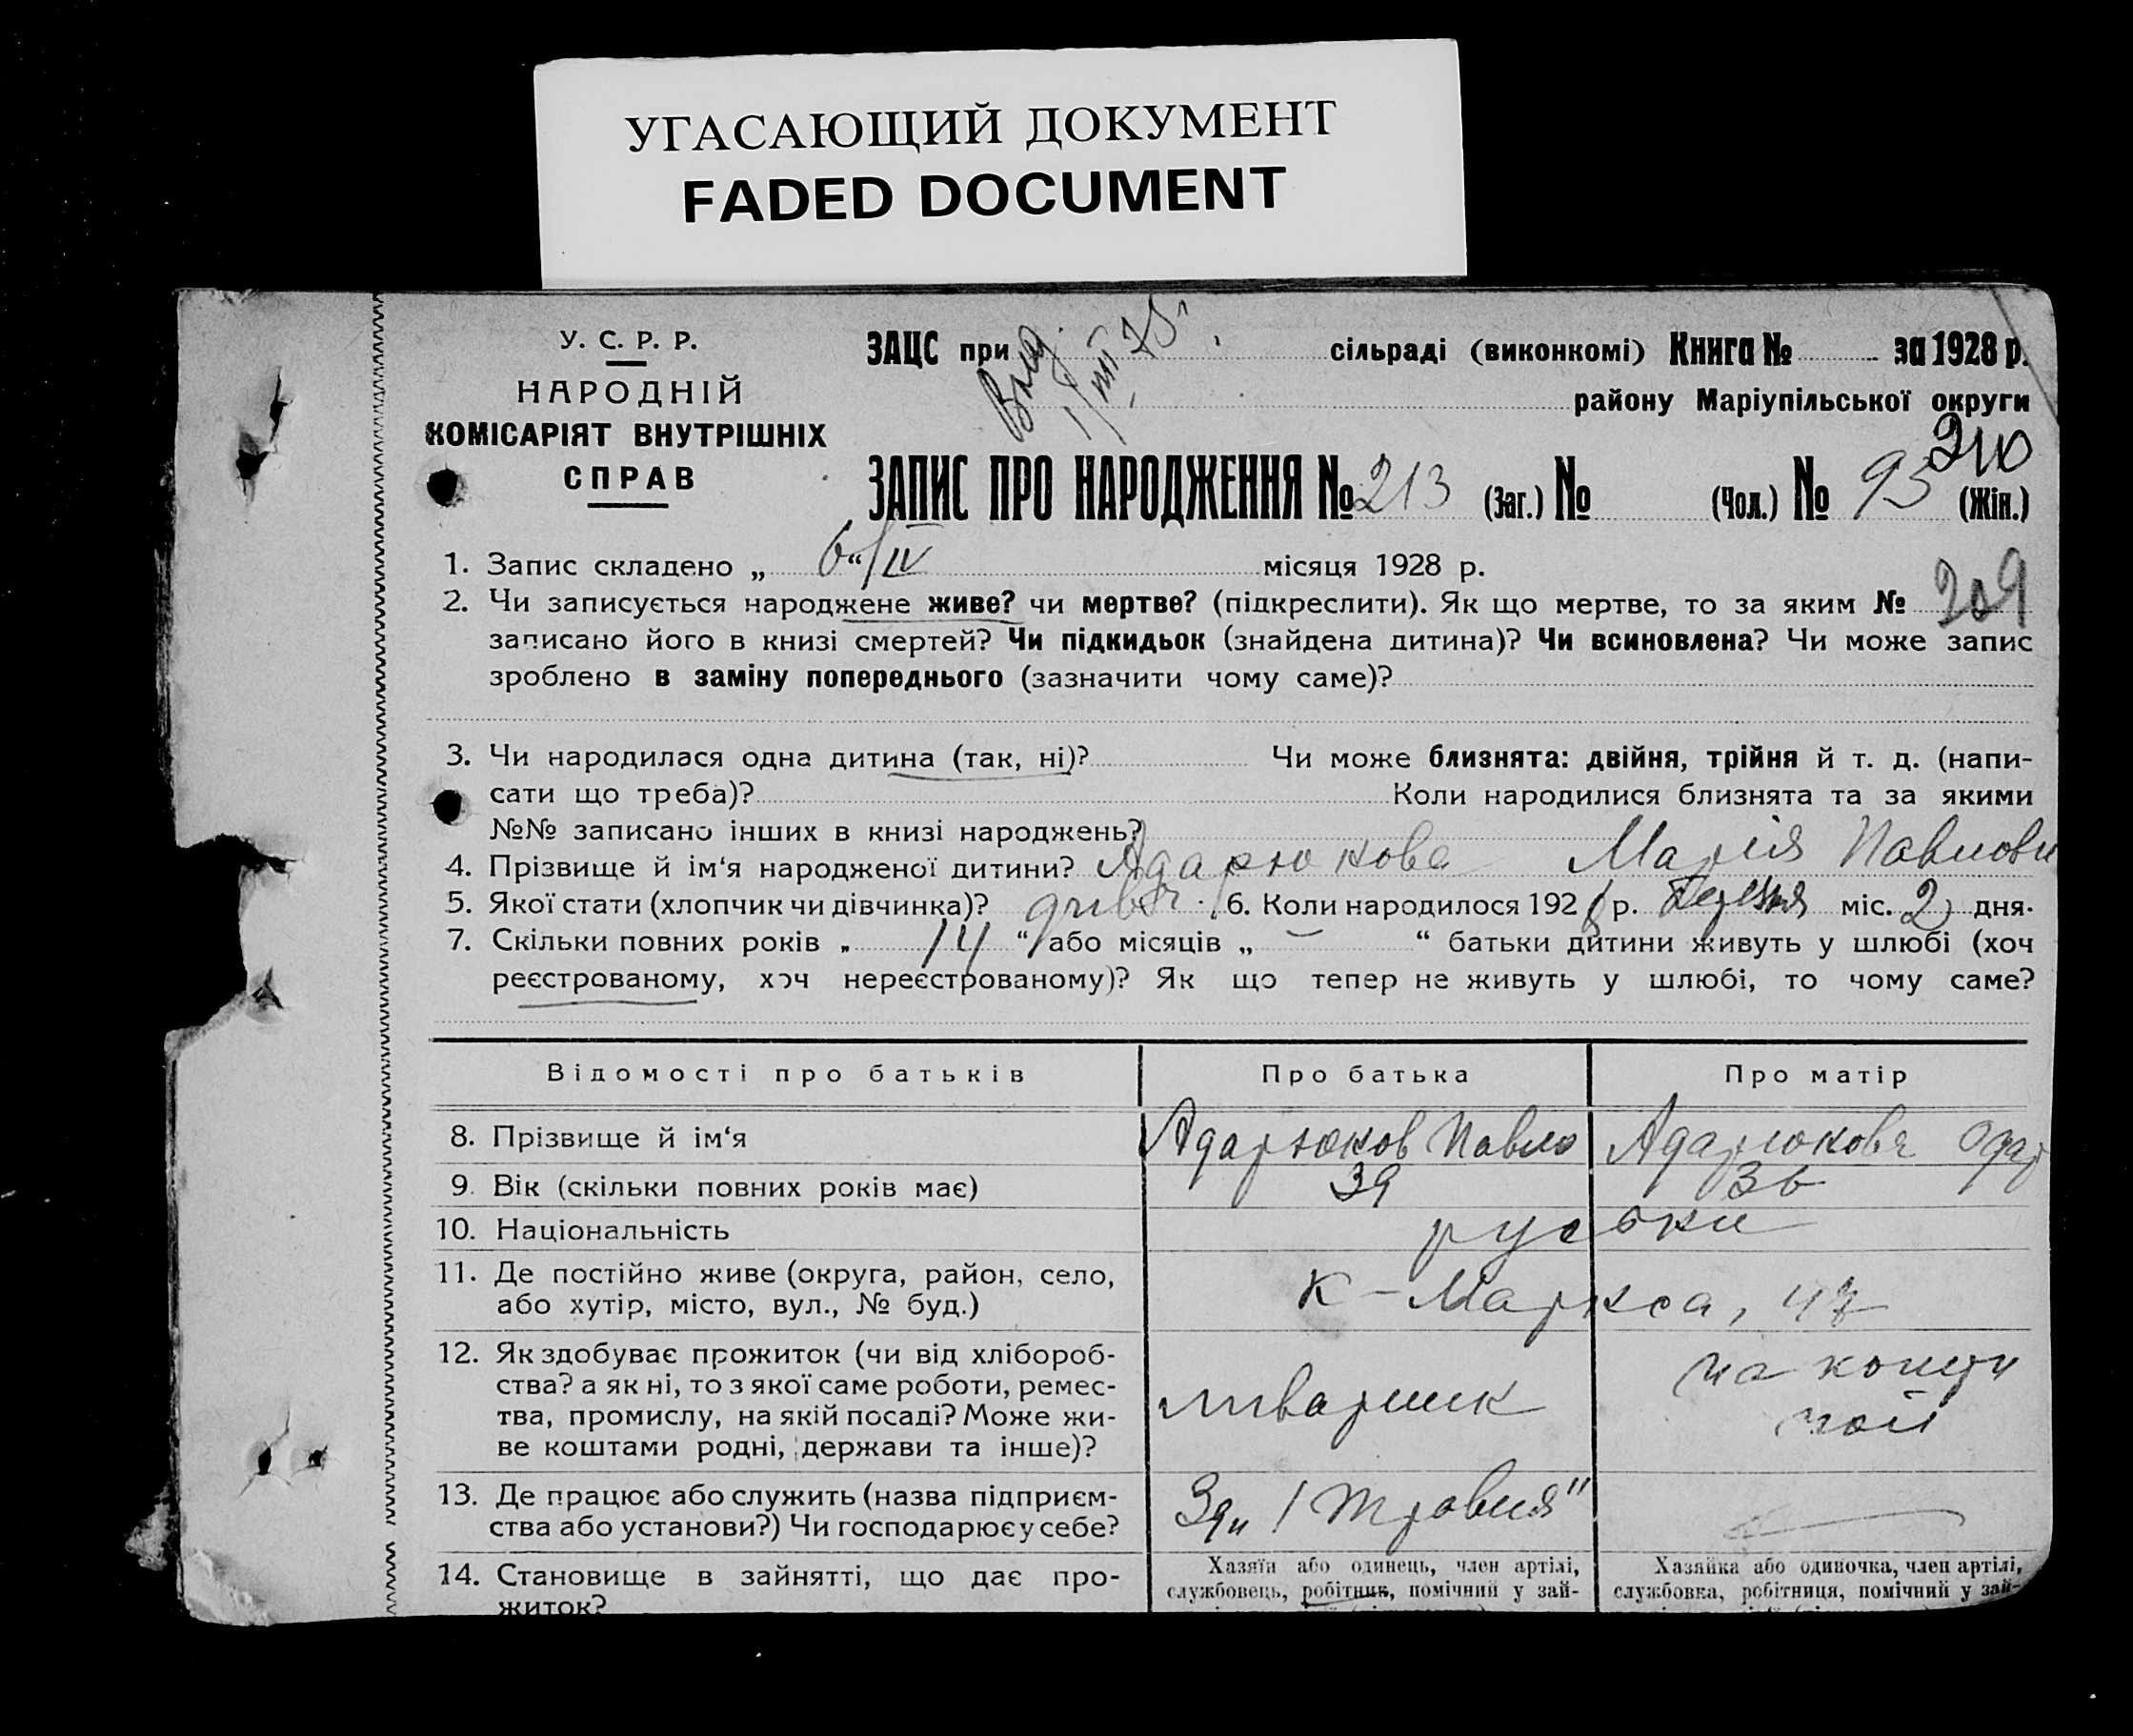 УГАСАЮЩИЙ ДОКУМЕНТ
FADED DOCUMENT
У. С. Р. Р.
НАРОДНІЙ
КОМІСАРІЯТ ВНУТРІШНІХ
СПРАВ
ЗАЦС при сільраді (виконкомі) Книга № за 1928 р.
району Маріупільської округи
210
ЗАПИС ПРО НАРОДЖЕННЯ № 213 (Заг.) № (Чол.) № 95 (Жін.)
1. Запис складено „ 6 “/IV місяця 1928 р.
2. Чи записується народжене живе? чи мертве? (підкреслити). Як що мертве, то за яким № 209
записано його в книзі смертей? Чи підкидьок (знайдена дитина)? Чи всиновлена? Чи може запис
зроблено в заміну попереднього (зазначити чому саме)?
3. Чи народилася одна дитина (так, ні)? Чи може близнята: двійня, трійня й т. д. (напи-
сати що треба)? Коли народилися близнята та за якими
№№ записано інших в книзі народжень?
4. Прізвище й ім‘я народженої дитини? Адарюкова Марія Павлов
5. Якої стати (хлопчик чи дівчинка)? дивч 6. Коли народилося 1928 р. Березня міс. 2 дня.
7. Скільки повних років „ 14 “ або місяців „ – “ батьки дитини живуть у шлюбі (хоч
реєстрованому, хоч нереєстрованому)? Як що тепер не живуть у шлюбі, то чому саме?
Відомості про батьків Про батька Про матір
8. Прізвище й ім‘я Адарюков Павло Адарюкова Одар
9. Вік (скільки повних років має) 39 36
10. Національність руськи
11. Де постійно живе (округа, район, село,
або хутір, місто, вул., № буд.) К-Маркса, 47
12. Як здобуває прожиток (чи від хлібороб-
ства? а як ні, то з якої саме роботи, ремес-
тва, промислу, на якій посаді? Може жи-
ве коштами родні, держави та інше)?
ливарник
на
13. Де працює або служить (назва підприєм-
ства або установи?) Чи господарює у себе?
Зд „1 Травня“
14. Становище в зайнятті, що дає про-
житок?
Хазяїн або одинець, член артілі,
службовець, робітник, помічний у зай-
Хазяйка або одиночка, член артілі,
службовка, робітниця, помічний у зай-